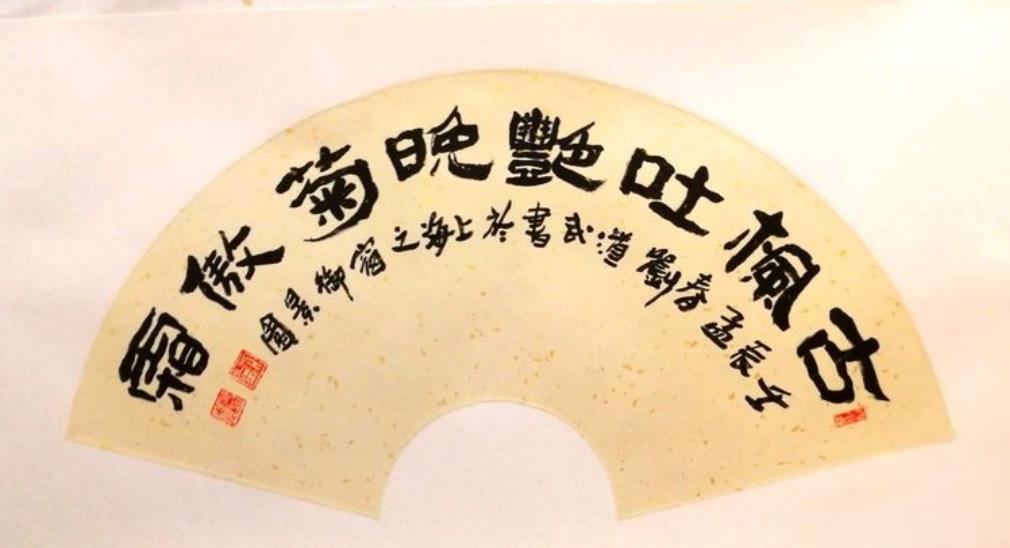 古楓吐艷晚菊傲霜
壬辰孟春劉道武書於上海之宿御景園